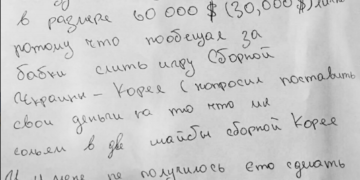 в размере 60 000 $ (30,000 $)
потому что пообещал за
бабки слить игру Сборной
Украины – Корее (попросил поставить
свои деньги на то что мы
сольем в две шайбы сборной Корее
меня не получилось ето сделать